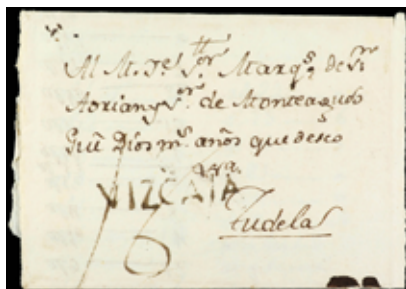 Al M. Ite Sor Marqs de Sn
Adrian y Sor de Monteagudo
Gue Dios ms años que deseo
VIZCAYA
Tudela